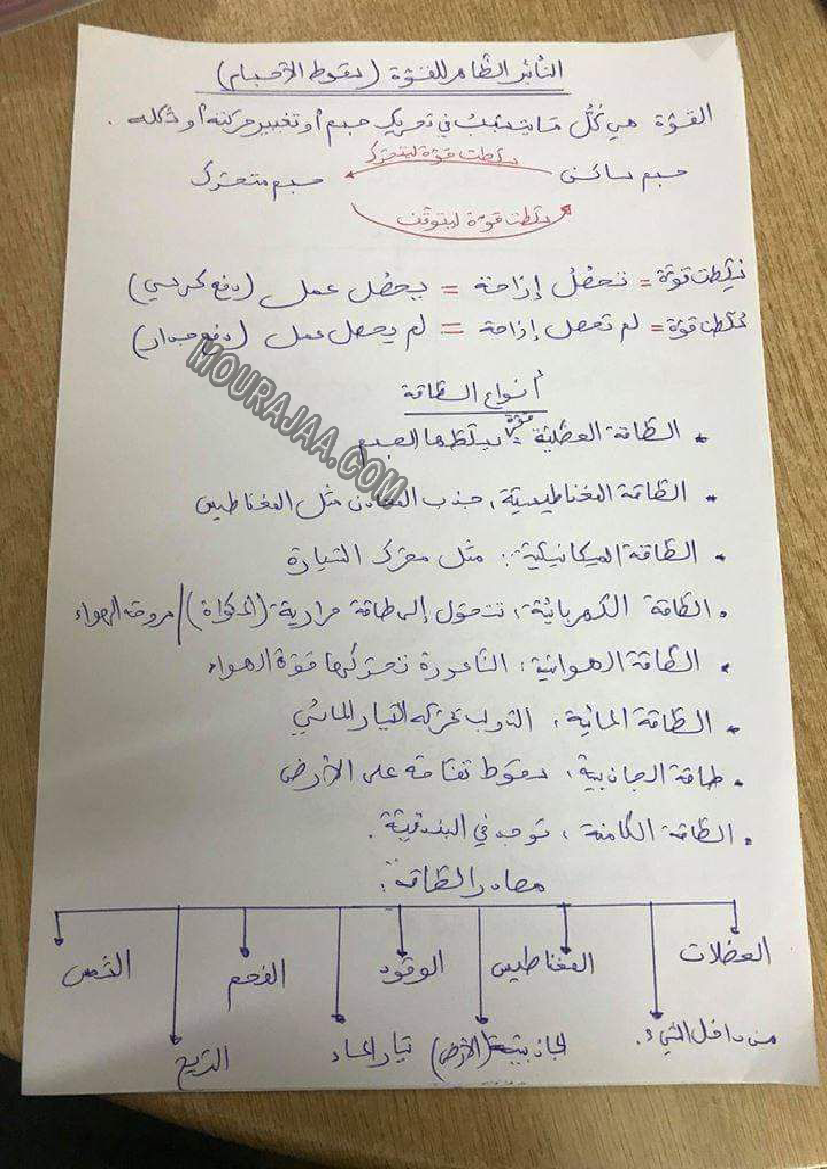 التأثير الظاهر للقوة (سقوط الأجسام)
القوّة هي كُلُّ ما يتسبّب في تحريك جسم أو تغيير حركته أو شكله.
سلّطت قوّة ليتحرّك
جسم ساكن جسم متحرّك
سلّطت قوّة ليتوقّف
سُلّطت قوّة = تحصُل إزاحة = يحصُل عمل (دفع كرسي)
سُلّطت قوّة = لم تحصل إزاحة = لم يحصل عمل (دفع جدار)
أنواع الطّاقة
• الطّاقة العضليّة: قوّة يسلّطها الجسم
• الطّاقة المغناطيسيّة، جذب المعادن مثل المغناطيس
• الطّاقة الميكانيكيّة: مثل محرّك السّيارة
• الطّاقة الكهربائيّة، تتحوّل إلى طاقة حرارية (المكواة)/مروحة الهواء
• الطّاقة الهوائيّة: النّاعورة تحرّكها قوّة الهواء
• الطّاقة المائيّة، الدّولاب تحرّكه التّيار المائي
• طاقة الجاذبيّة، سقوط تفّاحة على الأرض
• الطّاقة الكامنة، توجد في البندقيّة.
مصادر الطّاقة:
العضلات المغناطيس الوقود الفحم الشّمس
من داخل الشّيء. الجاذبيّة (الأرض) تيار الماء الرّيح
MOURAJAA.COM